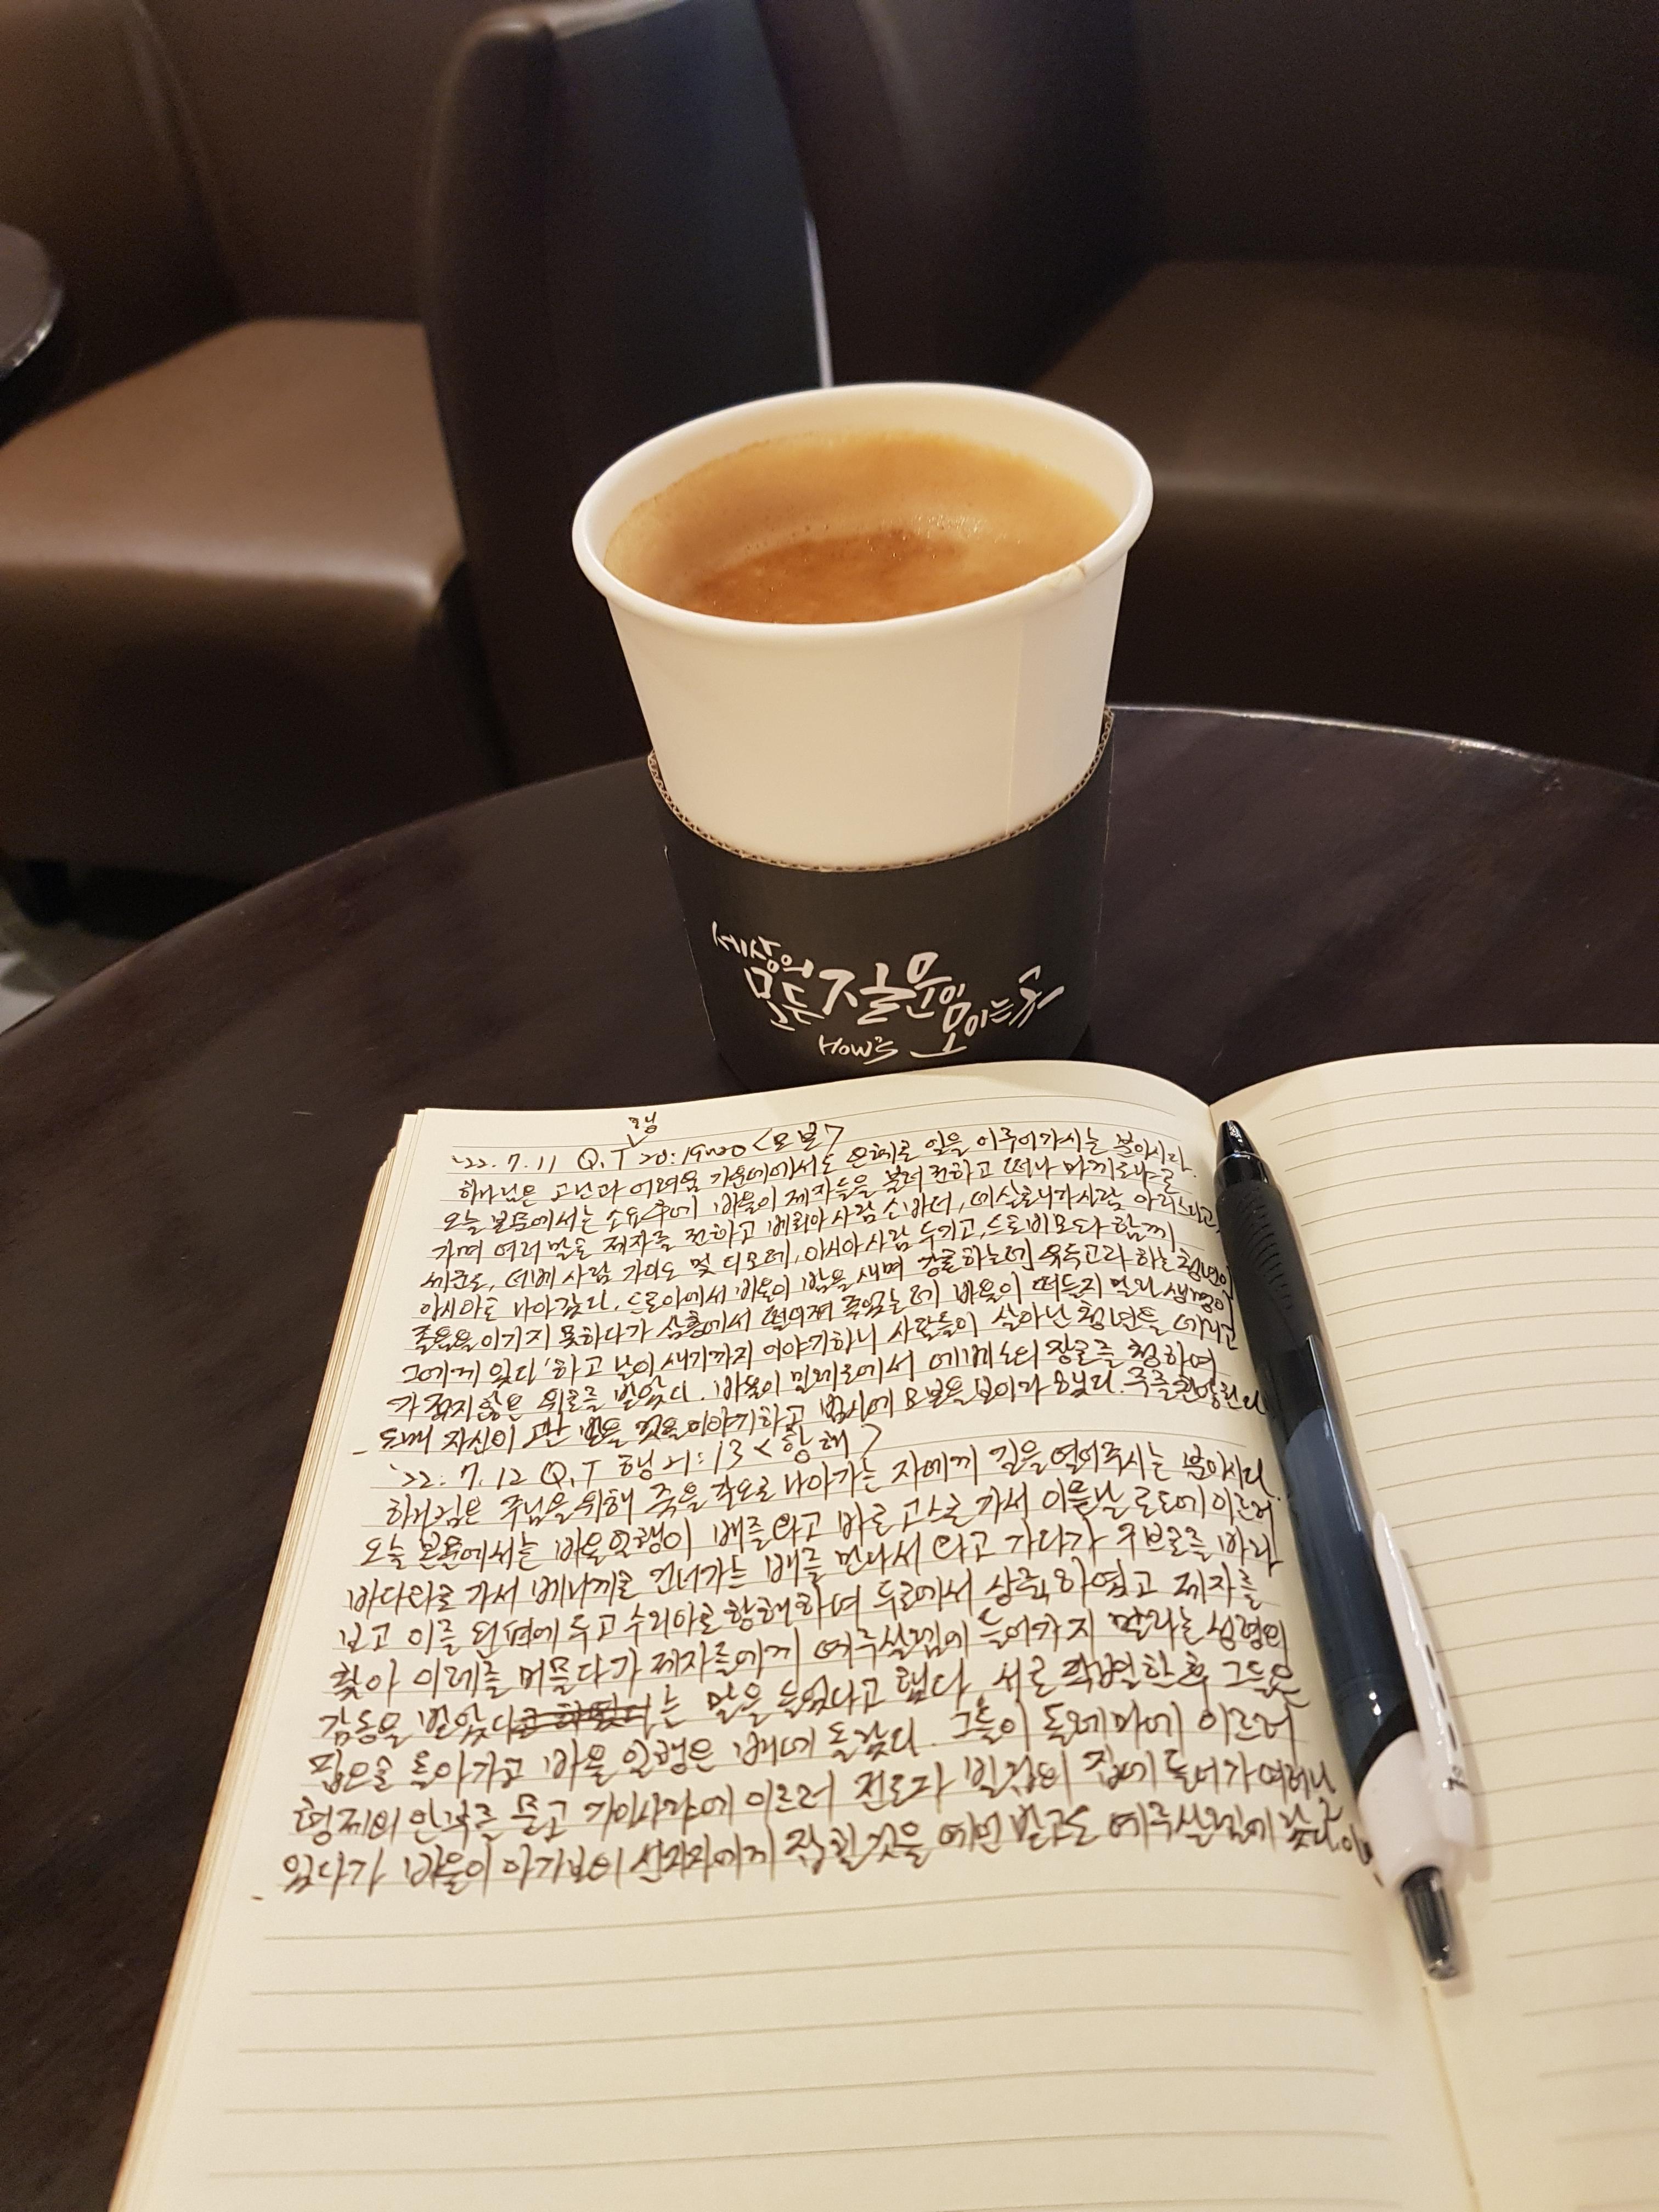 세상의
모두 질문이
모이는 곳
How's
행
'22. 7. 11 Q.T 20:19~20 <모본>
하나님은 고난과 어려움 가운데에서도 은혜로 일을 이루어가시는 분이시다.
오늘 본문에서는 소요후에 바울이 제자들을 불러 권하고 떠나 마게도냐로
가며 여러 말로 제자를 권하고 베뢰아 사람 소바더, 데살로니가사람 아리스다고,
세군도, 더베 사람 가이오 및 디모데, 아시아 사람 두기고, 드로비모와 함께
아시아로 나아갔다. 드로아에서 바울이 밤을 새며 강론하는데 유두고라 하는 청년이
졸음을 이기지 못하다가 삼층에서 떨어져 죽었는데 바울이 떠들지 말라 생명이
그에게 있다 하고 날이 새기까지 이야기하니 사람들이 살아난 청년을 데리고
가 적지않은 위로를 받았다. 바울이 밀레도에서 에베소의 장로를 청하여
자신이 이야기하고 범사에 모본을 보이라 하였다.
'22. 7. 12 Q.T 행 21:13 <항해>
하나님은 주님을 위해 죽을 각오로 나아가는 자에게 길을 열어주시는 분이시다.
오늘 본문에서는 바울일행이 배를 타고 바로 고스로 가서 이튿날 로도에 이르러
바다라로 가서 베니게로 건너가는 배를 만나서 타고 가다가 구브로를 바라
보고 이를 왼편에 두고 수리아로 항해하여 두로에서 상륙하였고 제자를
찾아 이레를 머물다가 제자들에게 예루살렘에 들어가지 말라는 성령의
감동을 받았다는 말을 들었다고 했다. 서로 작별한 후 그들은
집으로 돌아가고 바울 일행은 배에 올랐다. 그들이 돌레마이에 이르러
형제의 안부를 묻고 가이사랴에 이르러 전도자 빌립의 집에 들어가 여러날
있다가 바울이 아가보의 선지자에게 잡힐 것을 예언 받고도 예루살렘에 갔다.